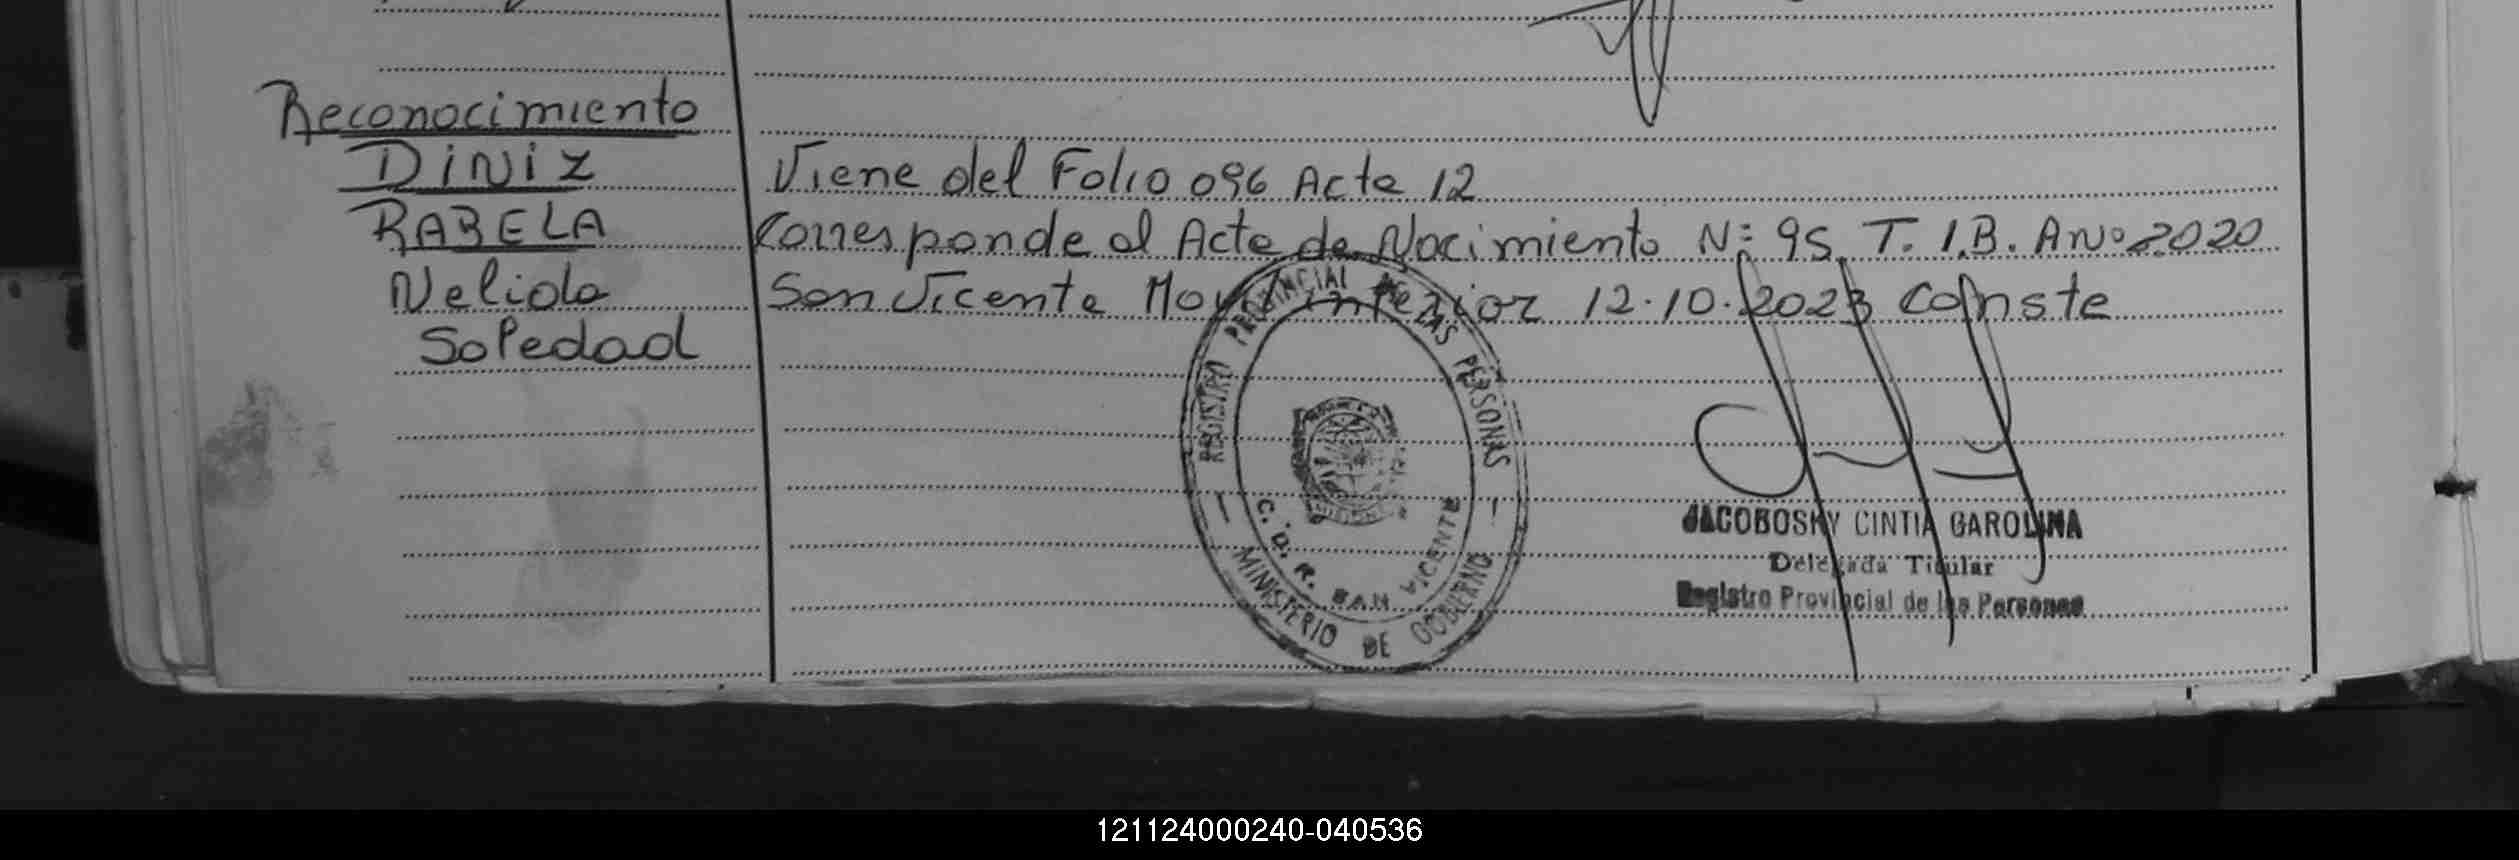 Reconocimiento
DINIZ
RABELA
Nelida
Soledad
Viene del Folio 096 Acta 12
Corresponde al Acta de Nacimiento N: 95 T. 1.B. Año 2020
San Vicente Movil interior 12.10.2023 conste
REGISTRO PROVINCIAL DE LAS PERSONAS
C.D.R. SAN VICENTE
MINISTERIO DE GOBIERNO
JACOBOSKY CINTIA CAROLINA
Delegada Titular
Registro Provincial de las Personas
121124000240-040536